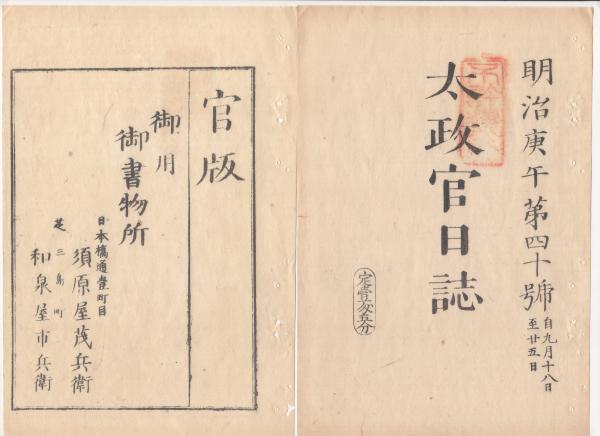 明治庚午第四十號
自九月十八日
至廿五日
太政官日誌
定壹匁五分
官版
御用
御書物所
日本橋通壹町目
須原屋茂兵衛
芝三島町
和泉屋市兵衛